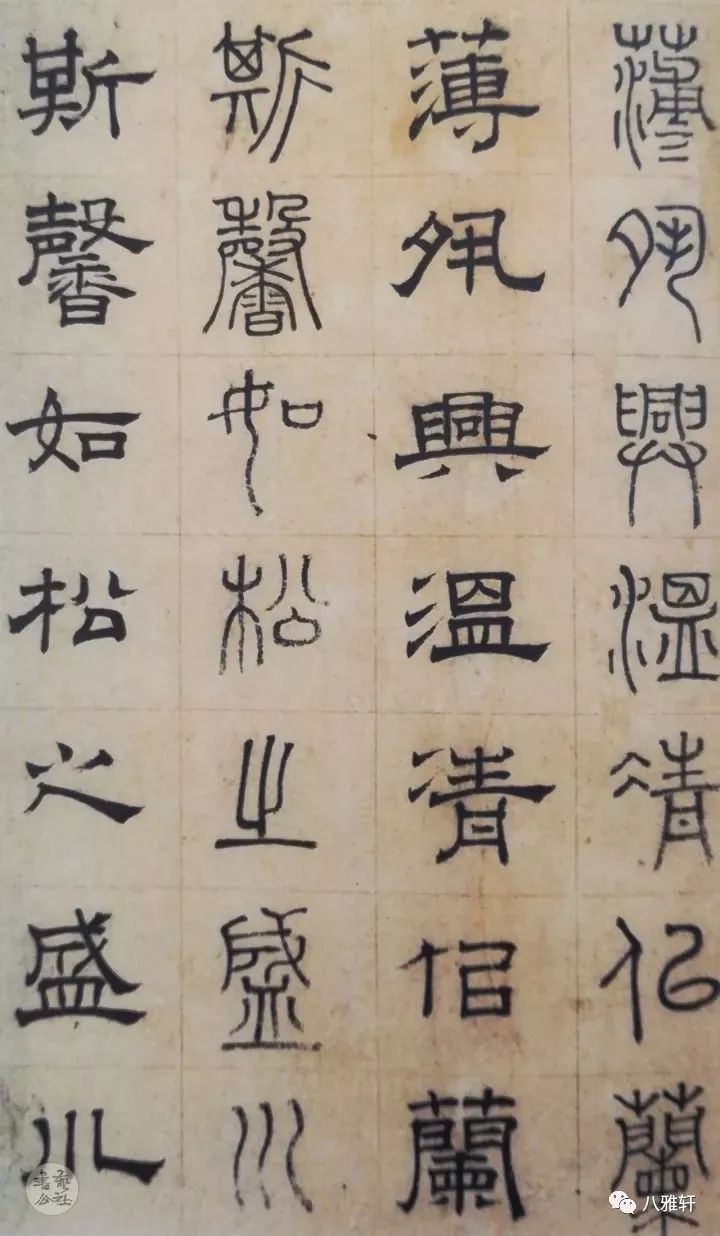 薄夙興溫凊似蘭
薄夙興溫凊似蘭
斯馨如松之盛川
斯馨如松之盛川
書藝公社
八雅轩